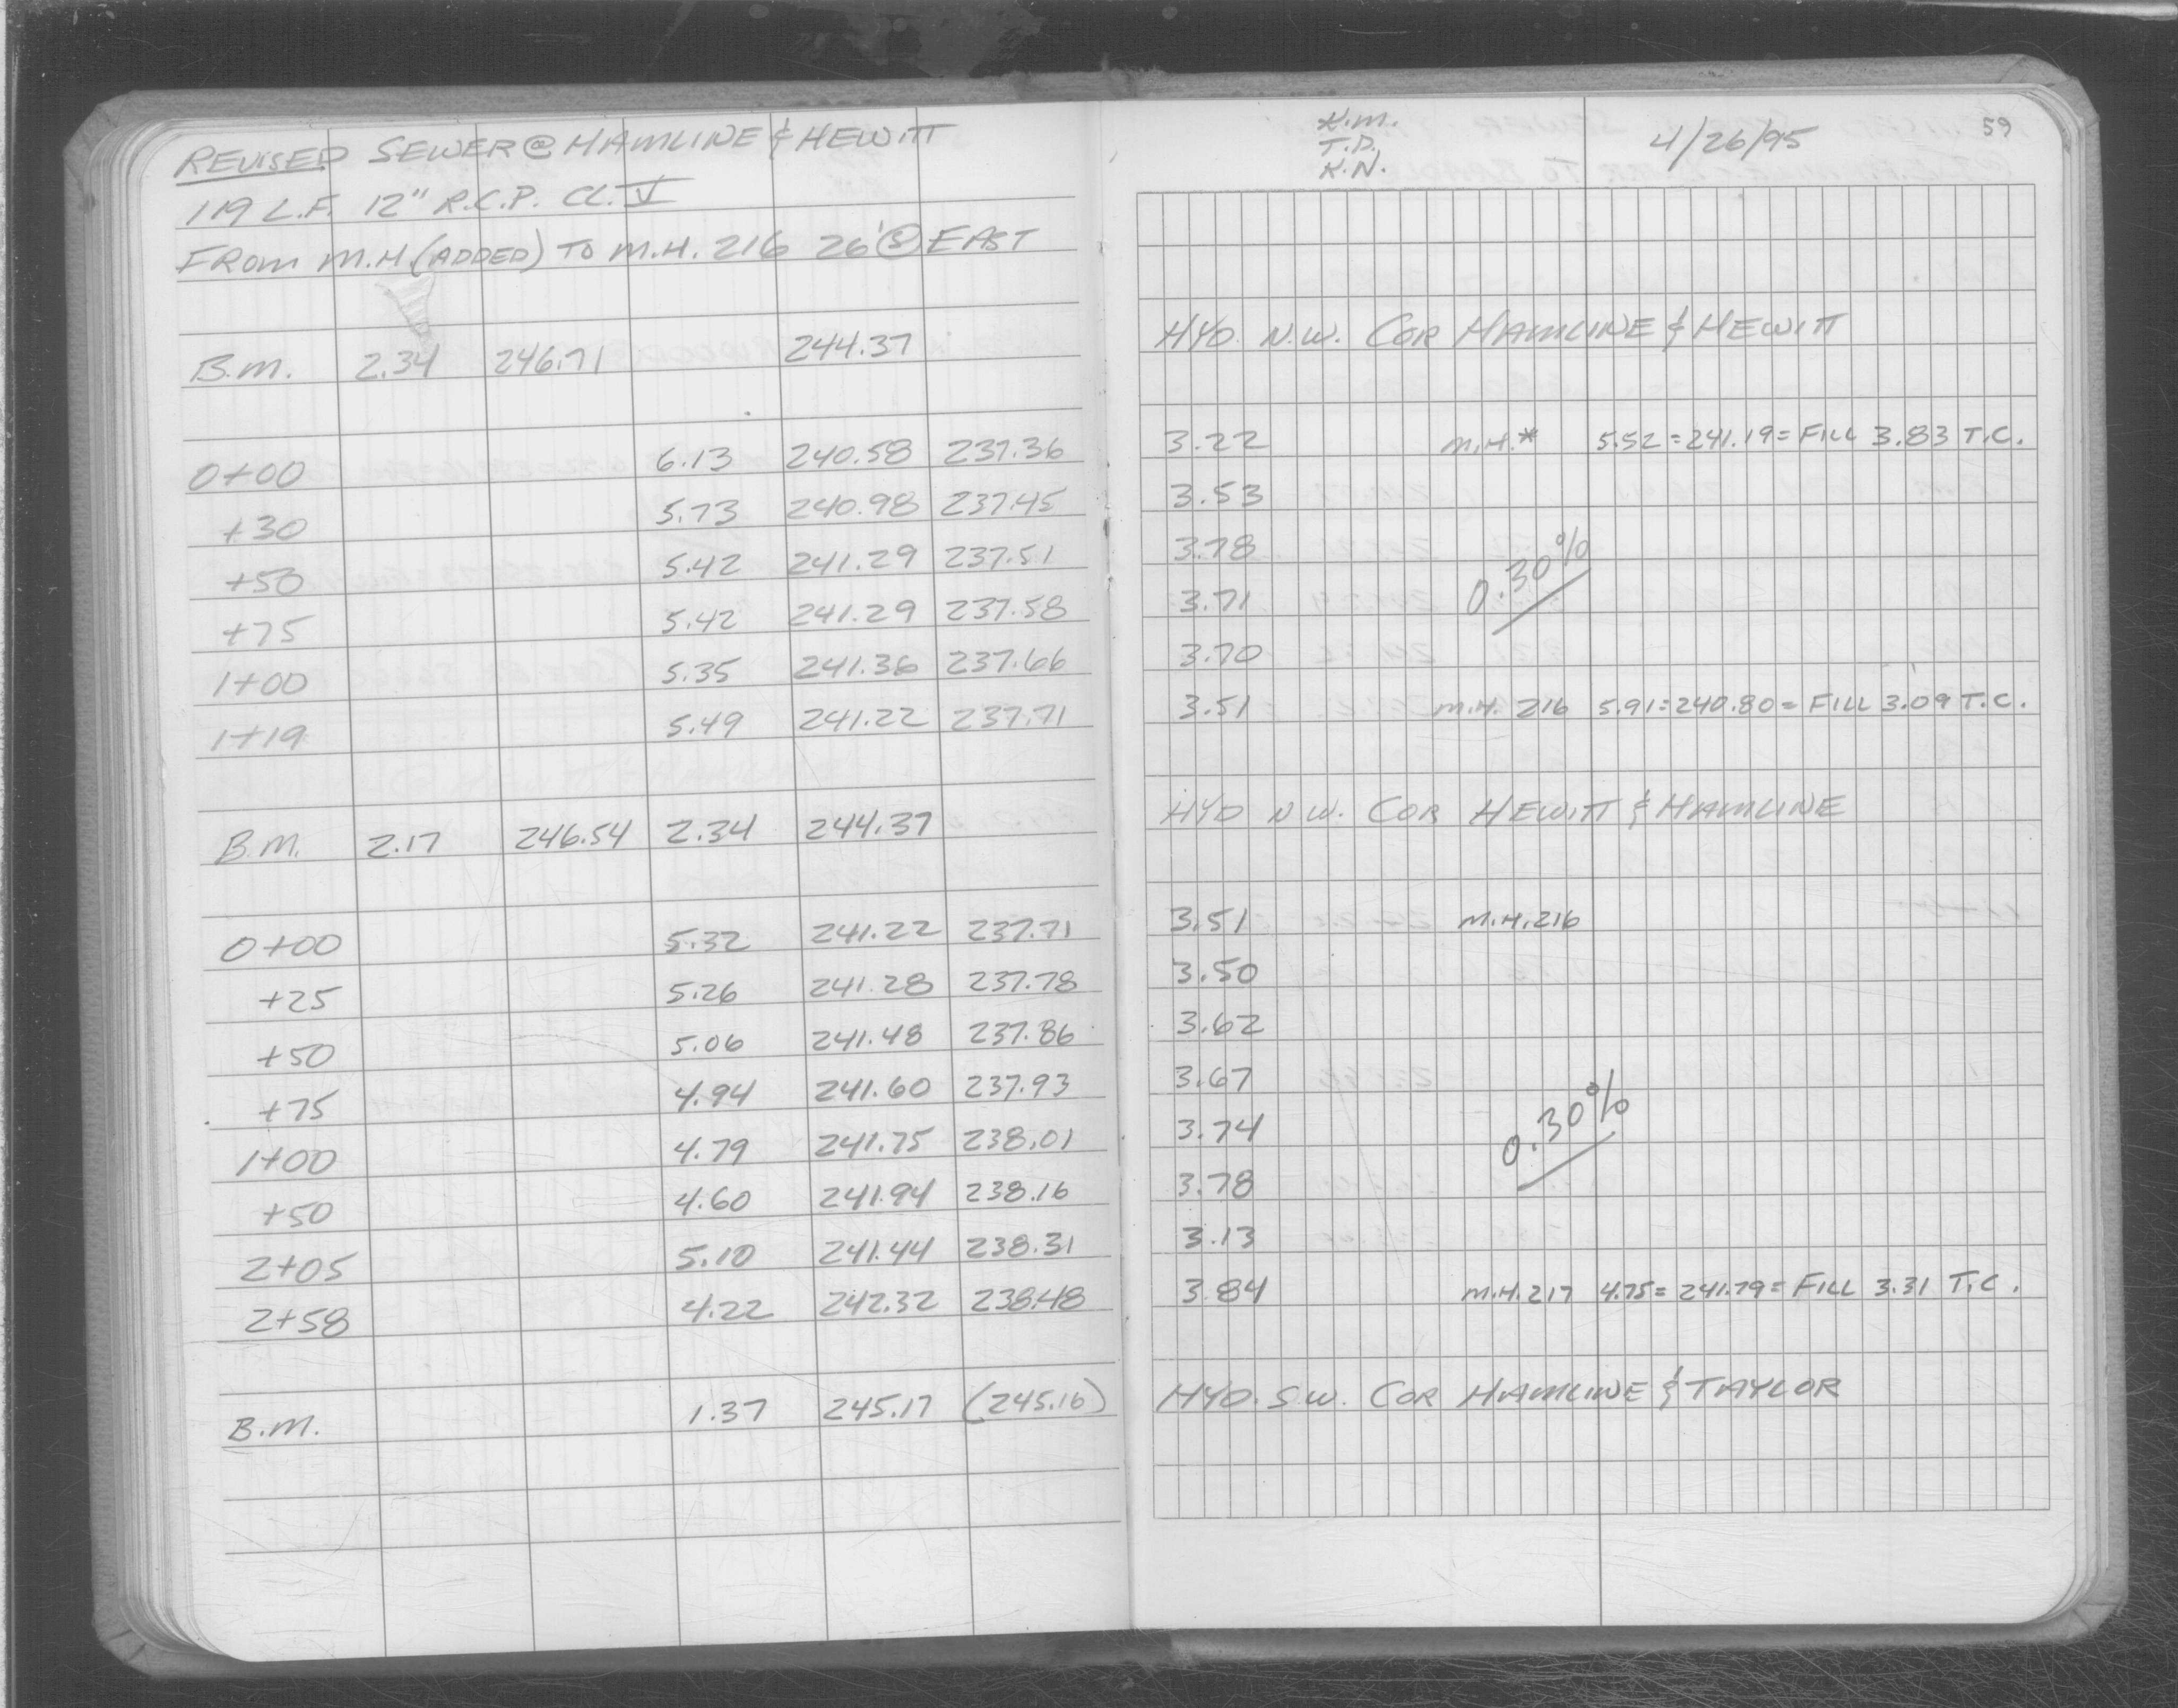 REVISED SEWER @ HAMLINE & HEWITT
119 L.F. 12" R.C.P. CL. V
FROM M.H. (ADDED) TO M.H. 216 26' Ⓢ EAST
B.M. 2.34 246.71 244.37
0+00 6.13 240.58 237.36
+30 5.73 240.98 237.45
+50 5.42 241.29 237.51
+75 5.42 241.29 237.58
1+00 5.35 241.36 237.66
1+19 5.49 241.22 237.71
B.M. 2.17 246.54 2.34 244.37
0+00 5.32 241.22 237.71
+25 5.26 241.28 237.78
+50 5.06 241.48 237.86
+75 4.94 241.60 237.93
1+00 4.79 241.75 238.01
+50 4.60 241.94 238.16
2+05 5.10 241.44 238.31
2+58 4.22 242.32 238.48
B.M. 1.37 245.17 (245.16)
K.M.
T.D.
K.N.
4/26/95
59
HYD. N.W. COR HAMLINE & HEWITT
3.22 M.H.* 5.52 = 241.19 = FILL 3.83 T.C.
3.53
3.78
0.30%
3.71
3.70
3.51 M.H. 216 5.91 = 240.80 = FILL 3.09 T.C.
HYD N.W. COR HEWITT & HAMLINE
3.51 M.H. 216
3.50
3.62
3.67
0.30%
3.74
3.78
3.13
3.84 M.H. 217 4.75 = 241.79 = FILL 3.31 T.C.
HYD. S.W. COR HAMLINE & TAYLOR